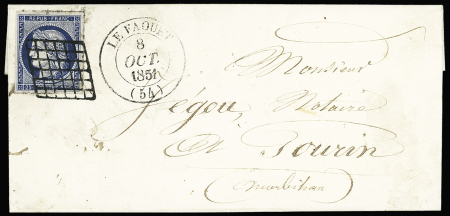 REPUB. FRANC.
LE FAOUET
8
OCT.
1851
(54)
Monsieur
Jégou, Notaire
At Gourin
Morbihan